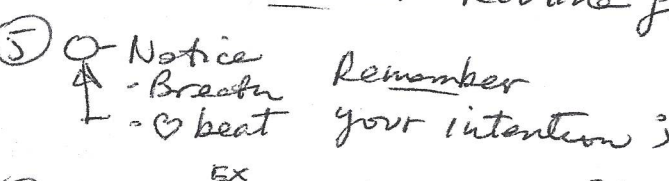 ⑤ - Notice
- Breath Remember
- ♡ beat your intention ;
5X